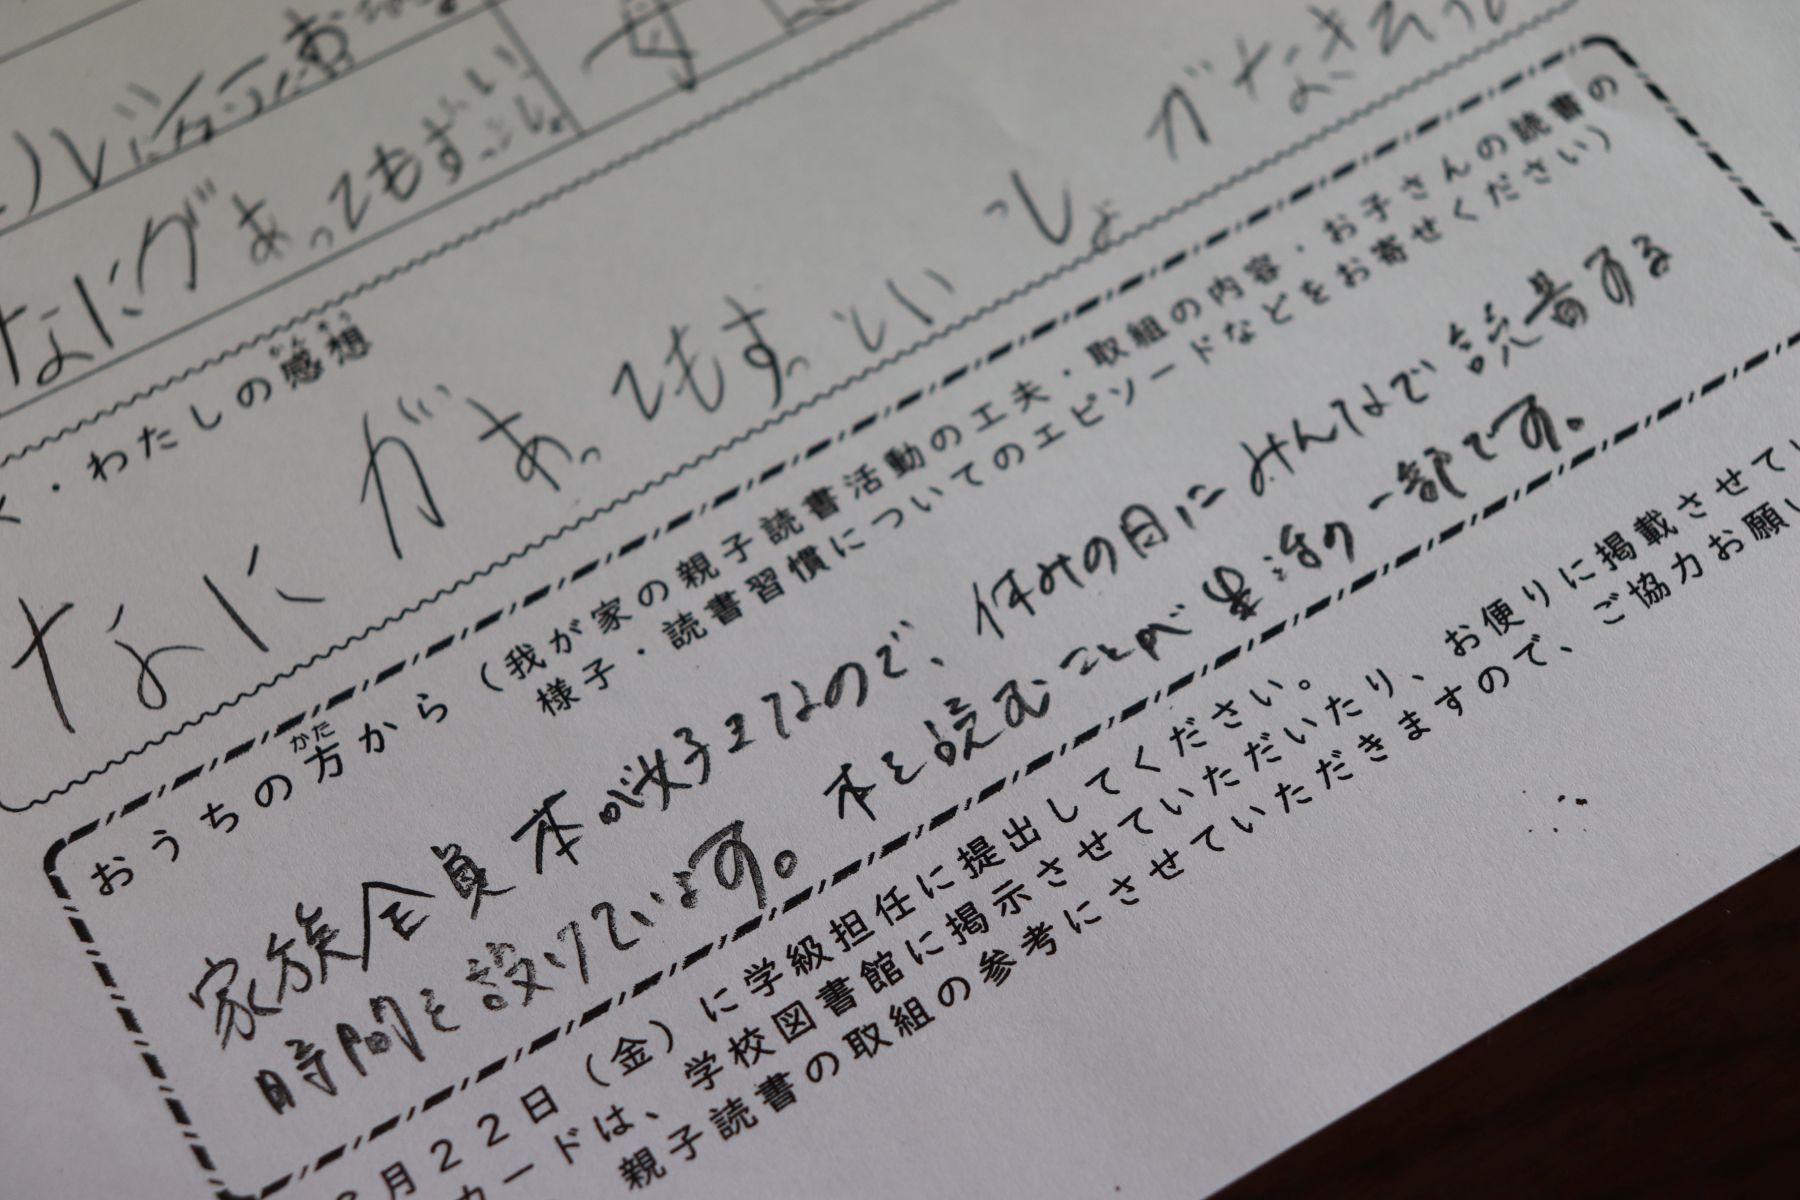 母
なにがあってもずっといっしょ
・わたしの感想
かんそう
なにがあってもずっといっしょがなきそう
おうちの方から(我が家の親子読書活動の工夫・取組の内容・お子さんの読書の
かた
様子・読書習慣についてのエピソードなどをお寄せください)
家族全員本が好きなので、休みの日にみんなで読書する
時間を設けています。本を読むことが生活の一部です。
月22日(金)に学級担任に提出してください。
カードは、学校図書館に掲示させていただいたり、お便りに掲載させてい
親子読書の取組の参考にさせていただきますので、ご協力お願い